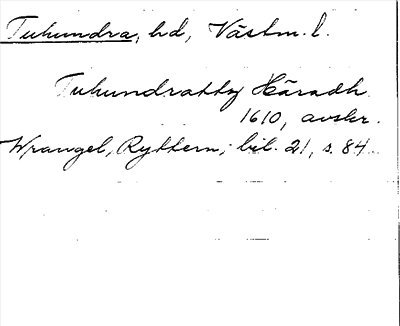 Tuhundra, hd, Västm. l.
Tuhundratty Häradh
1610, avskr.
Wrangel, Ryttern, bil. 21, s. 84.